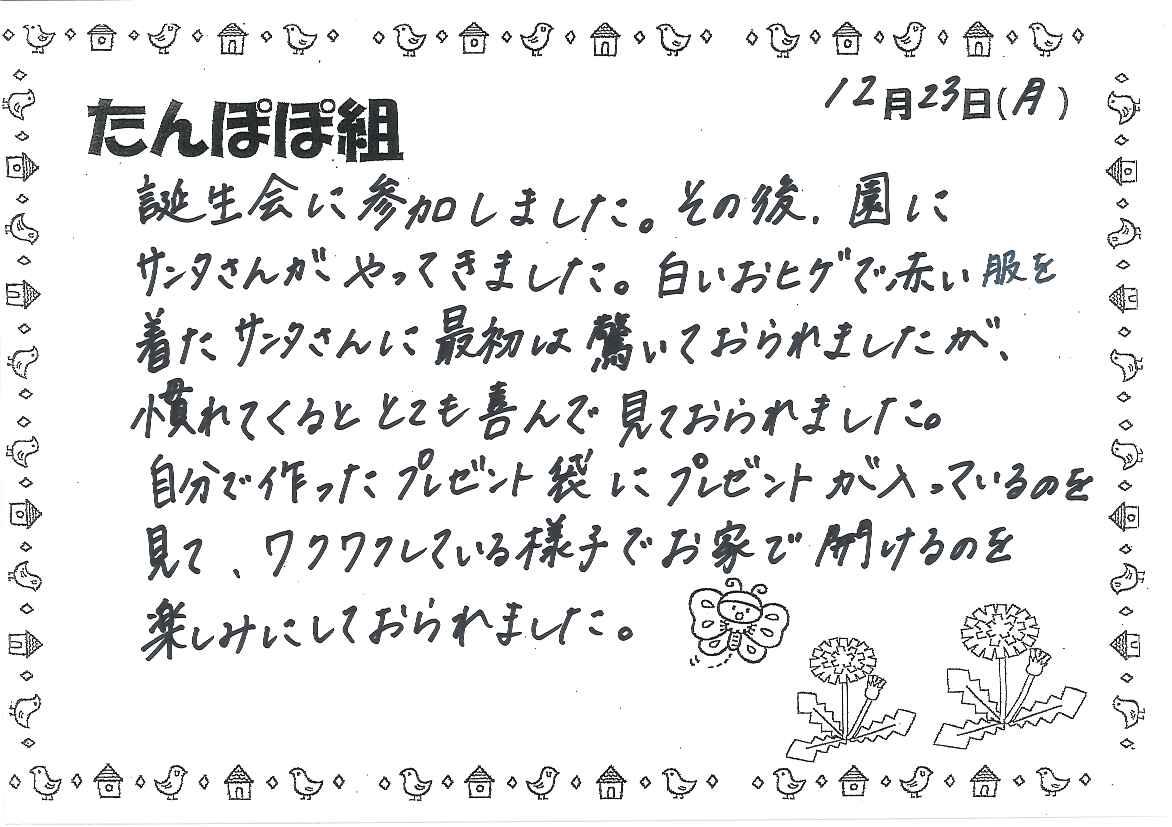 たんぽぽ組
12月23日(月)
誕生会に参加しました。その後、園に
サンタさんがやってきました。白いおヒゲで赤い服を
着たサンタさんに最初は驚いておられましたが、
慣れてくるととても喜んで見ておられました。
自分で作ったプレゼント袋にプレゼントが入っているのを
見て、ワクワクしている様子でお家で開けるのを
楽しみにしておられました。